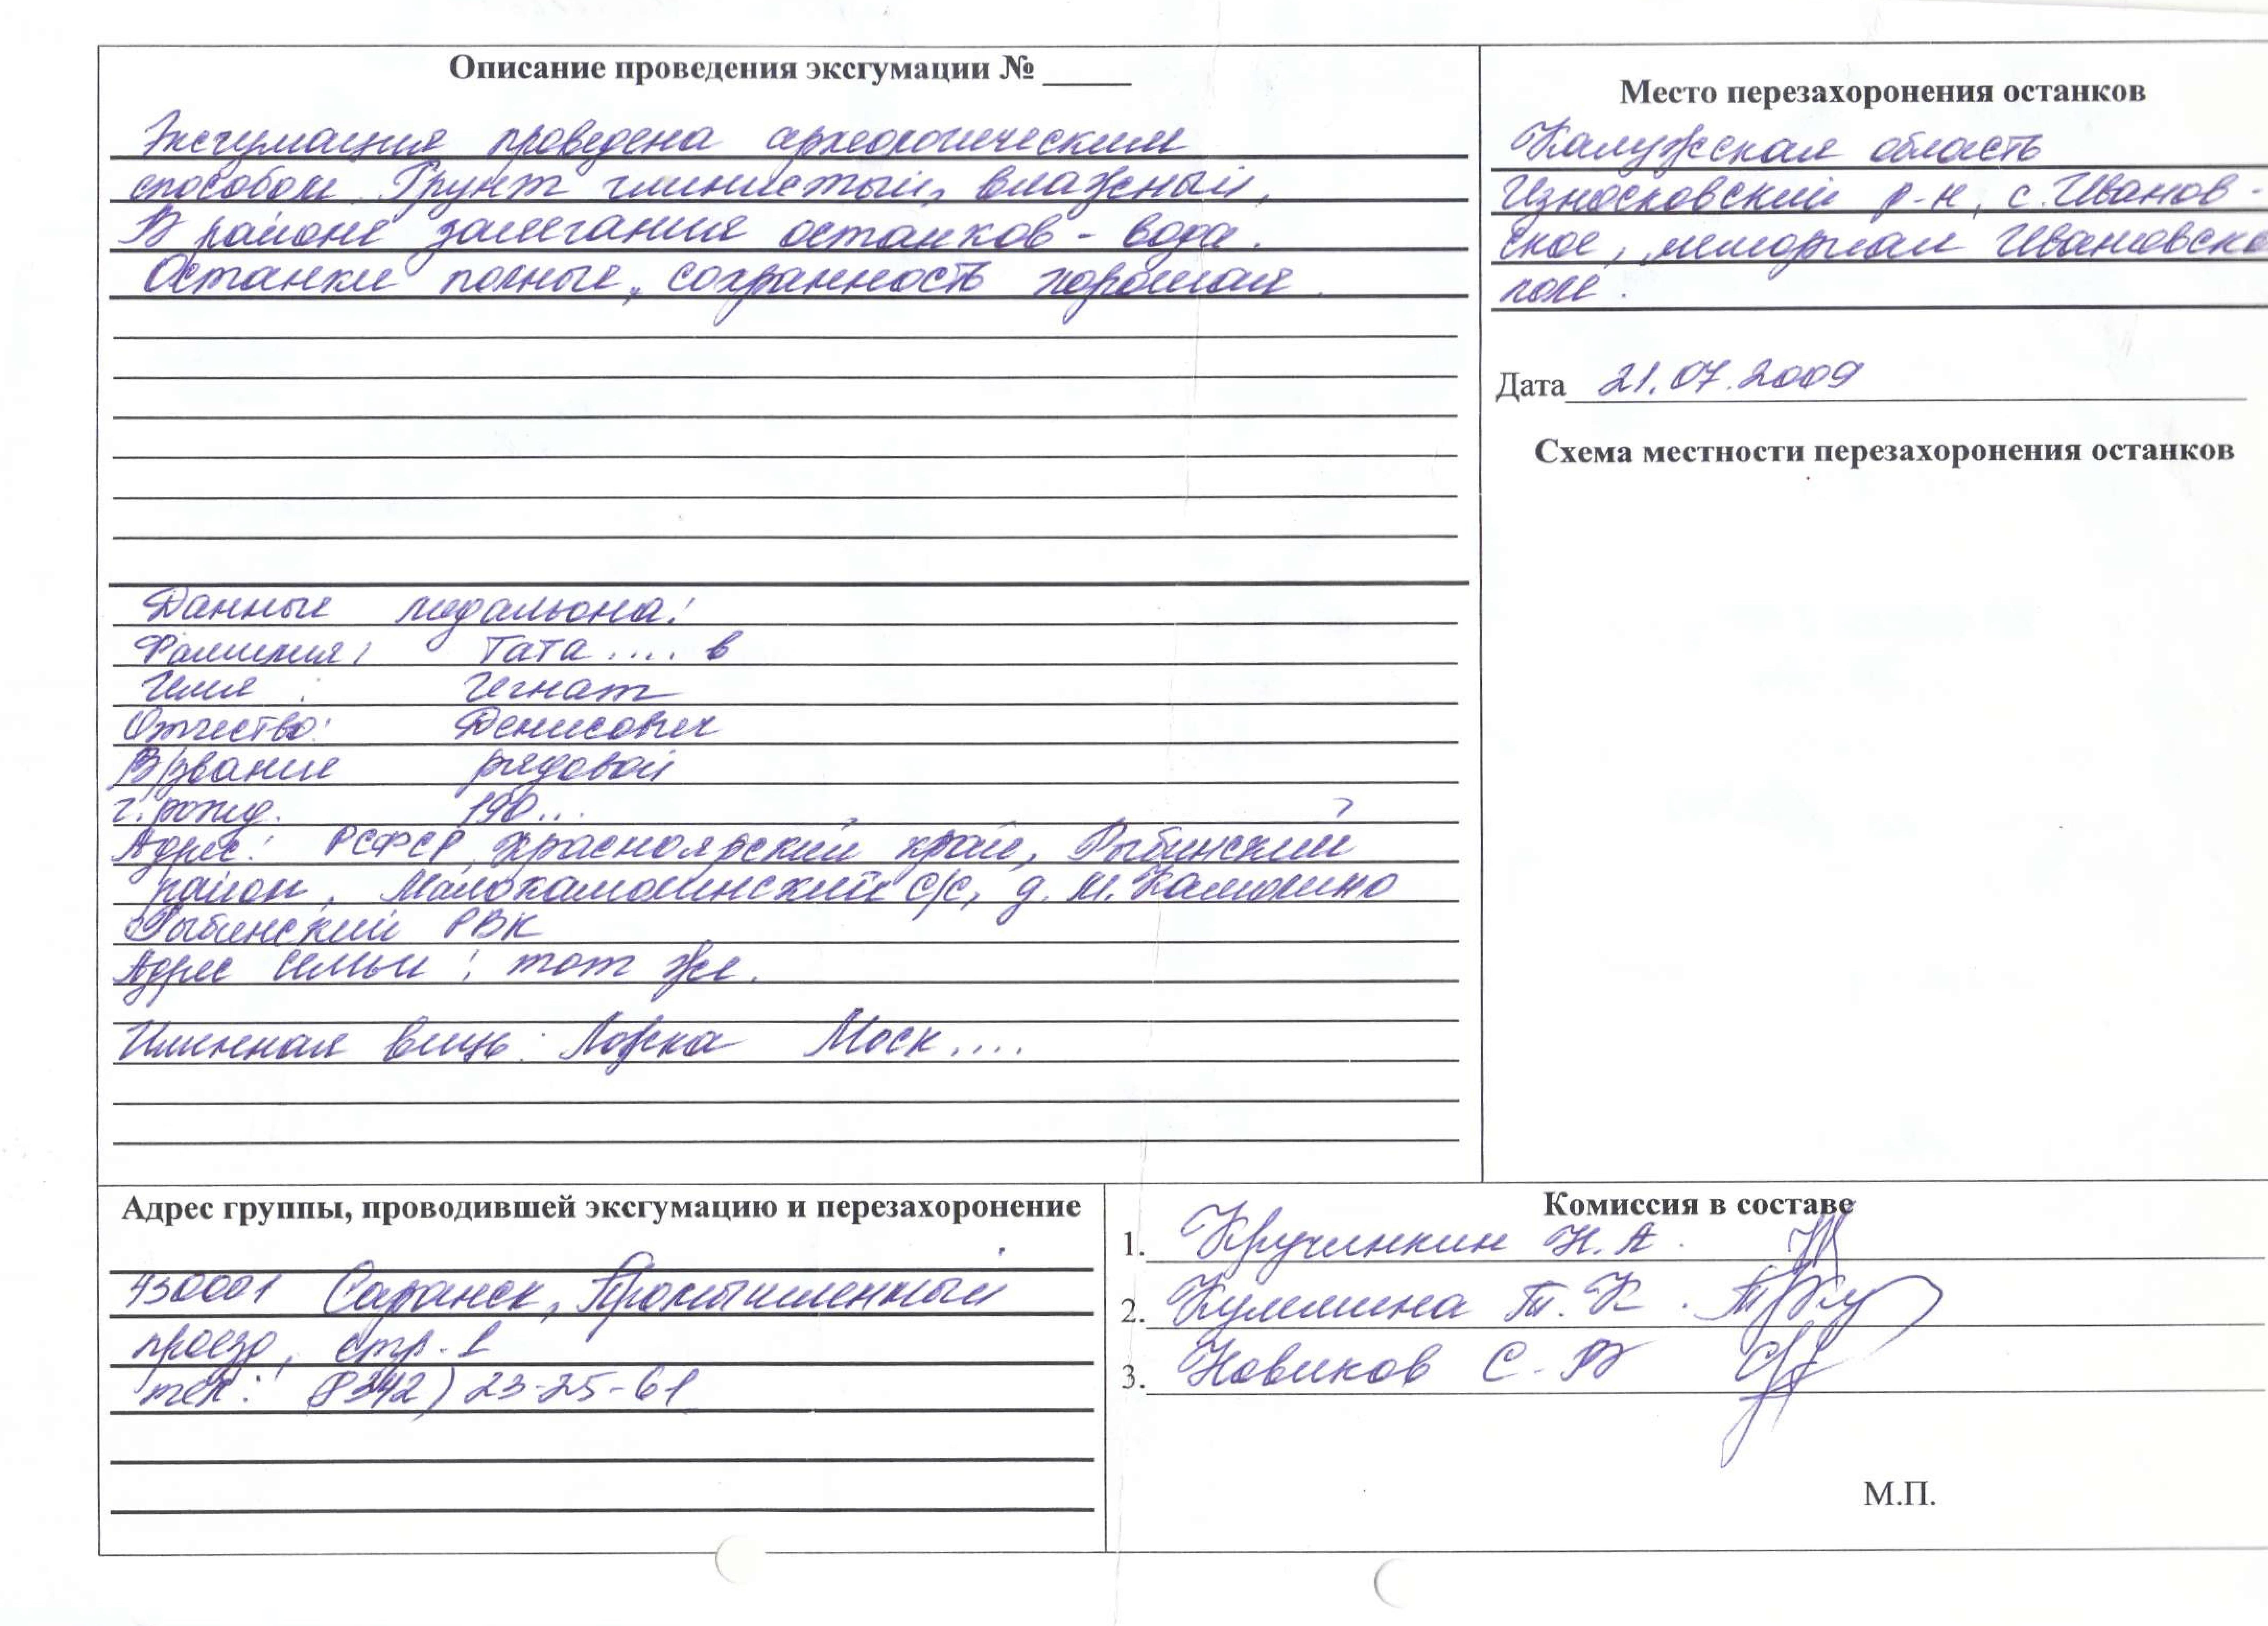 Описание проведения эксгумации № _____
Эксгумация проведена археологическим
способом. Грунт глинистый, влажный,
В районе залегания останков - вода.
Останки полные, сохранность хорошая.
Данные медальона:
Фамилия: Тата .... в
Имя : Игнат
Отчество: Денисович
В/звание рядовой
г. рожд. 190...
Адрес: РСФСР, Красноярский край, Рыбинский ?
район, Малокамолинский с/с, д. М. Камолино
Рыбинский РВК
Адрес семьи: тот же.
Именная вещь: Ложка Моск....
Место перезахоронения останков
Калужская область
Износковский р-н, с. Иванов-
ское, мемориал Ивановско
поле.
Дата 21.07.2009
Схема местности перезахоронения останков
Адрес группы, проводившей эксгумацию и перезахоронение
430001 Саранск, Промышленный
проезд, стр. 1
тел: (8342) 23-25-61
Комиссия в составе
1. Кручинкин Н.А.
2. Т.К.
3. Новиков С.В
М.П.